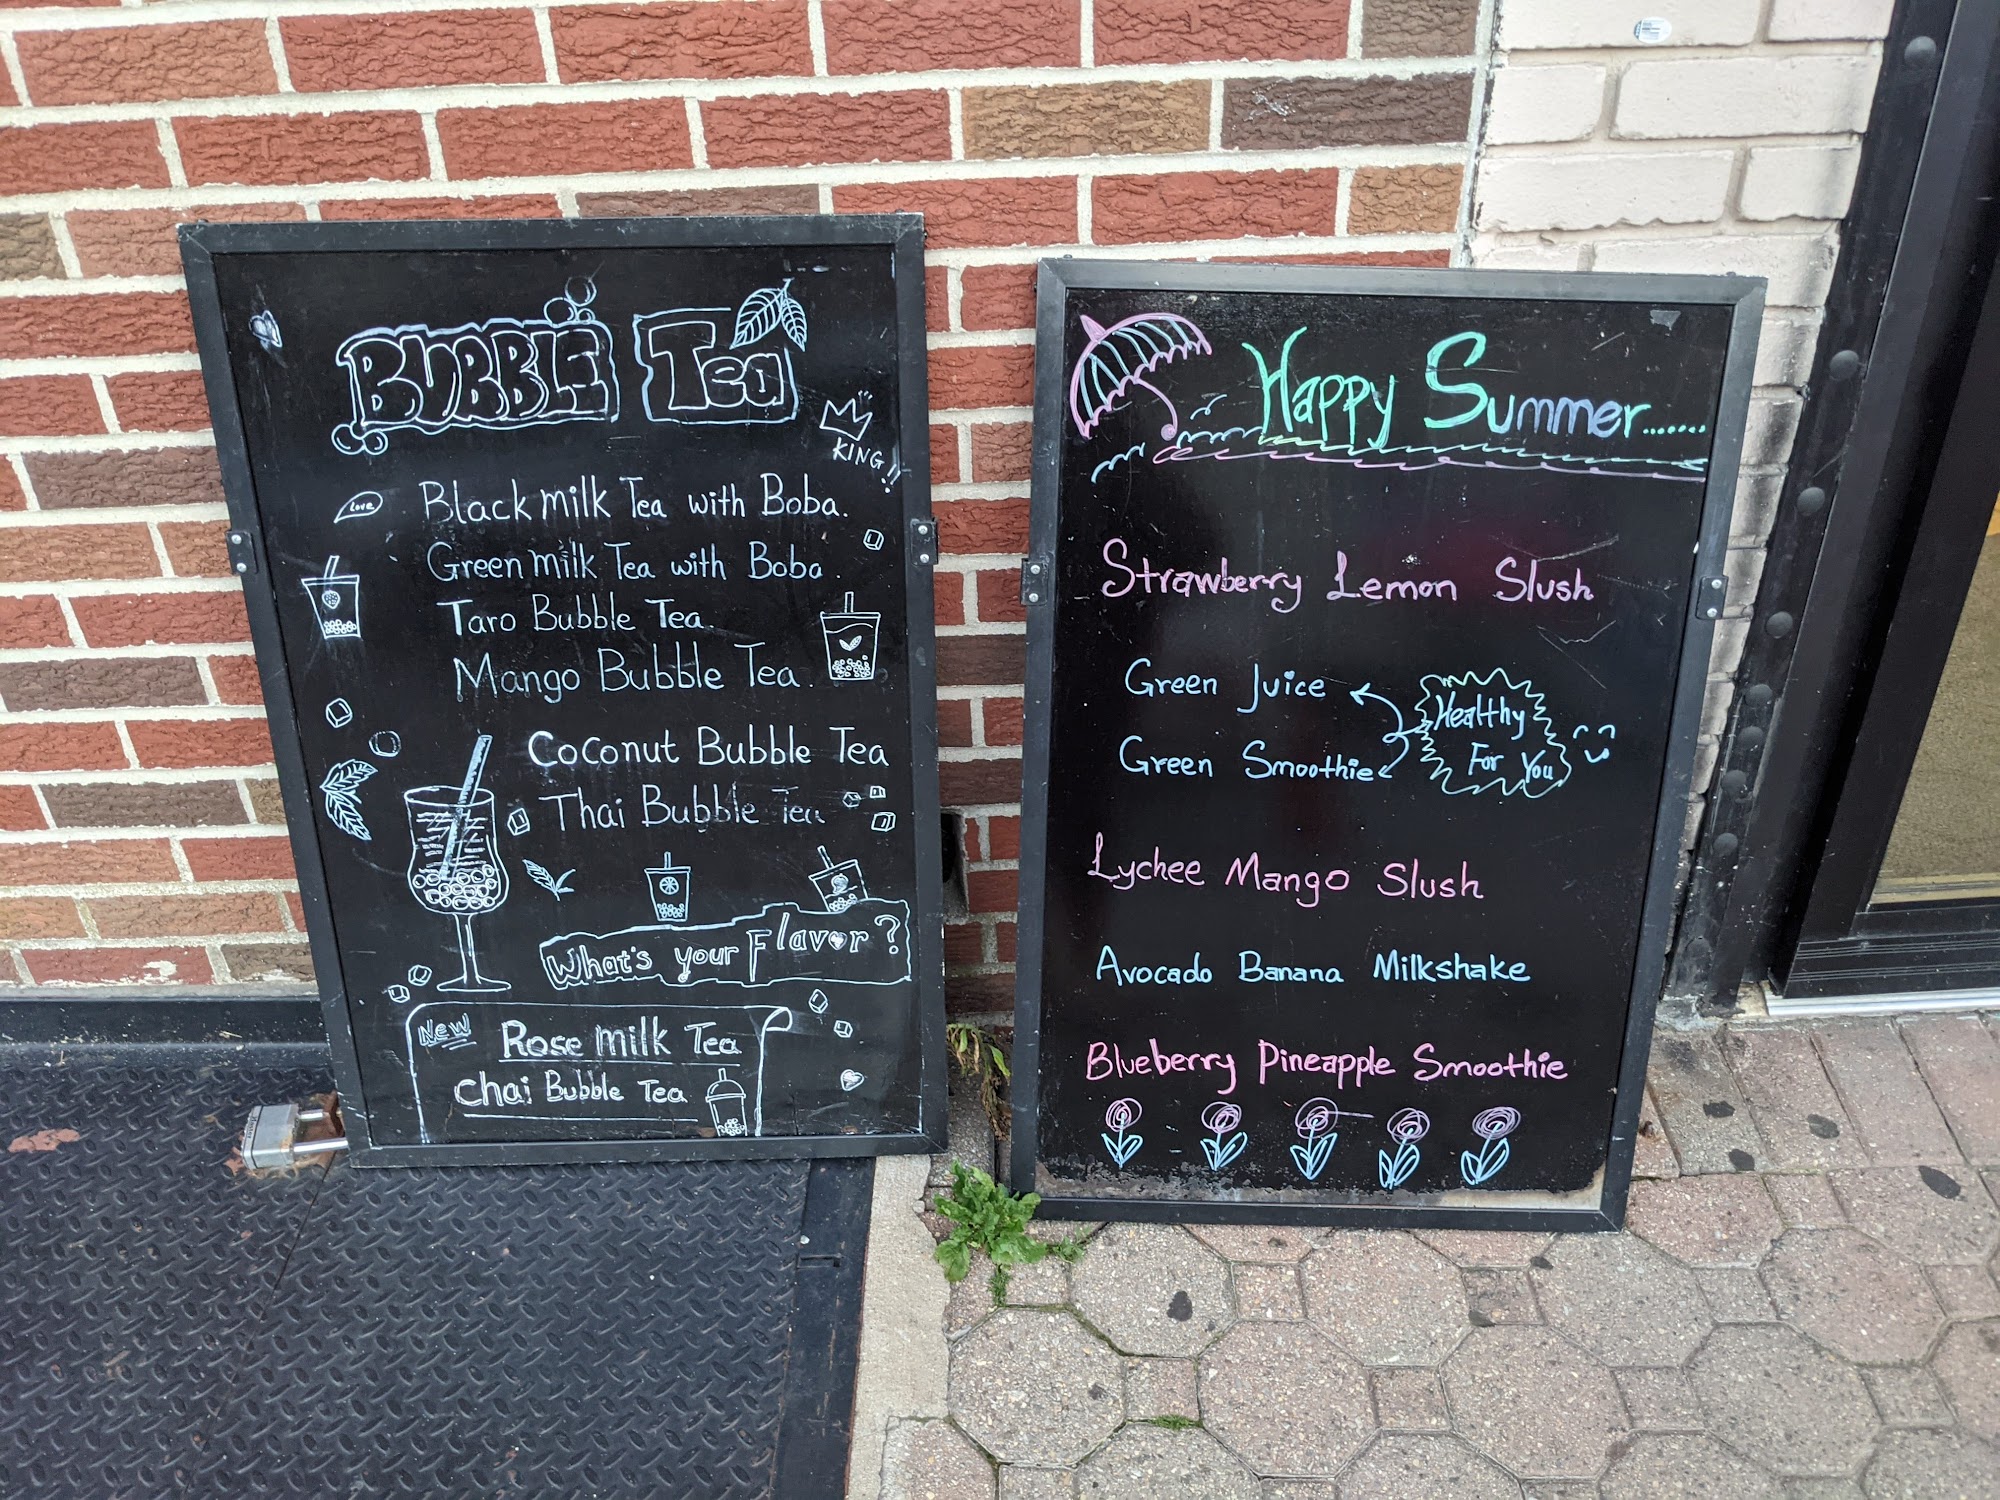 BUBBLE Tea
KING!!
Love
Black milk Tea with Boba.
Green milk Tea with Boba.
Taro Bubble Tea.
Mango Bubble Tea.
Coconut Bubble Tea
Thai Bubble Tea
What's your Flavor?
New
Rose milk Tea
Chai Bubble Tea
Happy Summer.......
Strawberry Lemon Slush
Green Juice
Green Smoothie
Healthy
For You
Lychee Mango Slush
Avocado Banana Milkshake
Blueberry Pineapple Smoothie